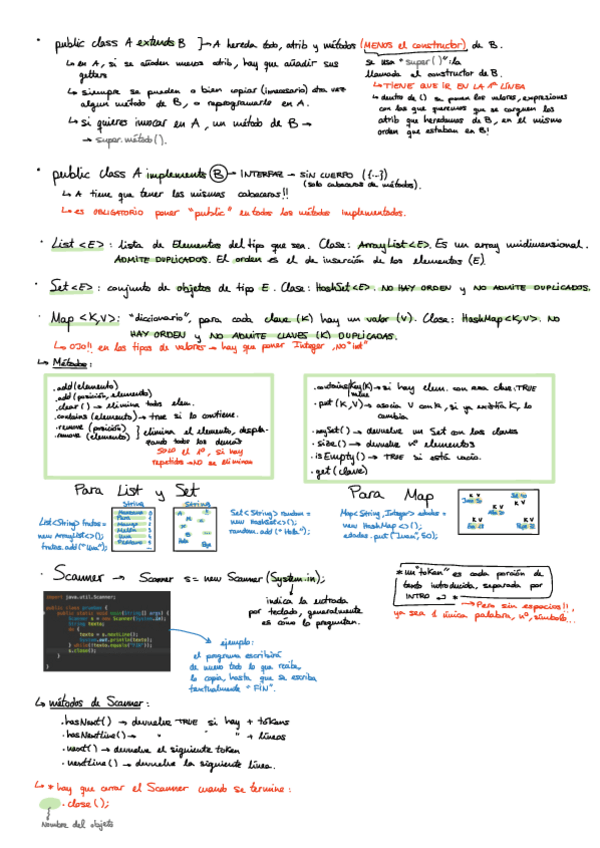 · public class A extends B ]→ A hereda todo, atrib y métodos (MENOS el constructor) de B.
↳ en A, si se añaden nuevos atrib, hay que añadir sus getters
↳ siempre se pueden o bien copiar (innecesario) otra vez
algún método de B, o reprogramarlo en A.
↳ si quieres invocar en A, un método de B →
→ super.método().
se usa "super()": la
llamada al constructor de B.
↳ TIENE QUE IR EN LA 1ª LÍNEA
↳ dentro de () se ponen los valores, expresiones
con los que queremos que se carguen los
atrib que heredamos de B, en el mismo
orden que estaban en B!
· public class A implements B → INTERFAZ → SIN CUERPO ({...})
(solo cabeceras de métodos).
↳ A tiene que tener las mismas cabeceras!!
↳ es OBLIGATORIO poner "public" en todos los métodos implementados.
· List <E> : lista de Elementos del tipo que sea. Clase: ArrayList <E>. Es un array unidimensional.
ADMITE DUPLICADOS. El orden es el de inserción de los elementos (E).
· Set <E> : conjunto de objetos de tipo E. Clase: HashSet <E>. NO HAY ORDEN y NO ADMITE DUPLICADOS.
· Map <K,V> : "diccionario", para cada clave (K) hay un valor (V). Clase: HashMap <K,V>. NO
HAY ORDEN y NO ADMITE CLAVES (K) DUPLICADAS.
↳ OJO!! en los tipos de valores → hay que poner Integer, NO "int"
↳ Métodos:
· add (elemento)
· add (posición, elemento)
· clear () → elimina todos elem.
· contains (elemento) → true si lo contiene.
· remove (posición)
· remove (elemento) } elimina el elemento, despla-
zando todos los demás
SOLO el 1º, si hay
repetidos → NO se eliminan
· contains Key (K) → si hay elem. con esa clave: TRUE
Value
· put (K, V) → asocia V con K, si ya existía K, lo
cambia.
· keySet () → devuelve un Set con las claves
· size () → devuelve nº elementos
· isEmpty () → TRUE si está vacío.
· get (clave)
Para List y Set
Para Map
String
String
List<String> frutas =
new ArrayList<>();
frutas.add("Uva");
Set<String> random =
new HashSet<>();
random.add("Hola");
Map<String, Integer> edades =
new HashMap<>();
edades.put("Juan", 50);
K V
K V
K V
K V
· Scanner → Scanner s = new Scanner (System.in);
indica la entrada
por teclado, generalmente
es cómo lo preguntan.
* un "token" es cada porción de
texto introducida, separada por
INTRO ↵ *
→ Pero sin espacios!!,
ya sea 1 única palabra, nº, símbolo...
import java.util.Scanner;
public class prueba {
public static void main(String[] args) {
Scanner s = new Scanner(System.in);
String texto;
do {
texto = s.nextLine();
System.out.println(texto);
} while(!texto.equals("FIN"));
s.close();
}
}
ejemplo:
el programa escribirá
de nuevo todo lo que reciba,
lo copia, hasta que se escriba
textualmente "FIN".
↳ métodos de Scanner:
· hasNext () → devuelve TRUE si hay + tokens
· hasNextLine () → " " " + líneas
· next () → devuelve el siguiente token
· nextLine () → devuelve la siguiente línea.
↳ * hay que cerrar el Scanner cuando se termine:
· close ();
Nombre del objeto